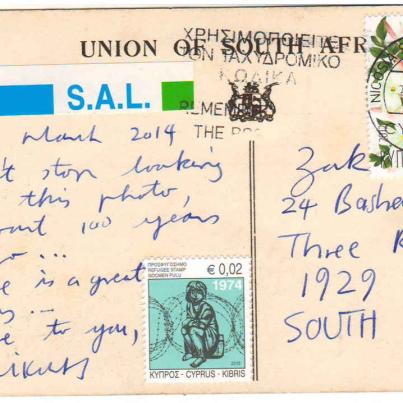 UNION OF SOUTH AFR
ΧΡΗΣΙΜΟΠΟΙΕΙΤΕ
ΤΟΝ ΤΑΧΥΔΡΟΜΙΚΟ
ΚΩΔΙΚΑ
REMEMBE
THE PO
NICOS
S.A.L.
March 2014
't stop looking
this photo,
100 years
...
is a great
...
to you,
ΠΡΟΣΦΥΓΟΣΗΜΟ
REFUGEE STAMP
GOCMEN PULU
€ 0,02
1974
2010
ΚΥΠΡΟΣ - CYPRUS - KIBRIS
Zak
24 Bashe
Three R
1929
SOUTH